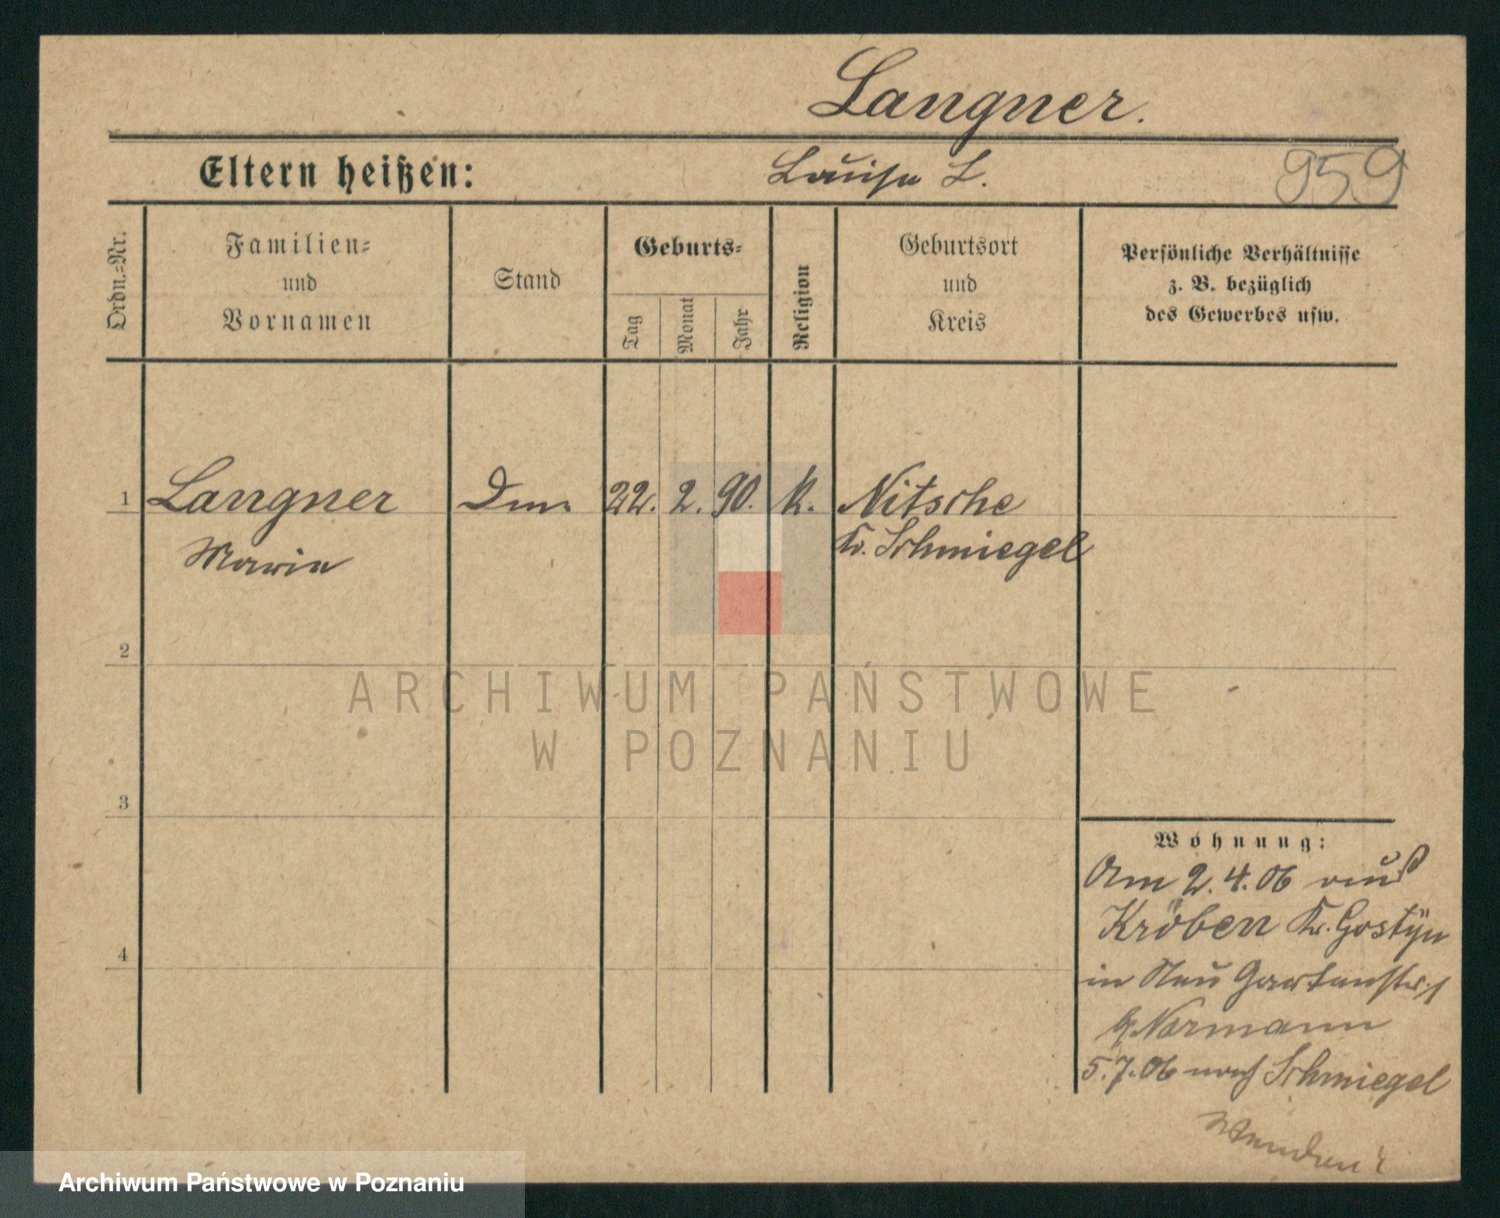 Langner.
Eltern heißen:
Louise L.
959
Ordn.-Nr.
Familien-
und
Vornamen
Stand
Geburts-
Tag
Monat
Jahr
Religion
Geburtsort
und
Kreis
Persönliche Verhältnisse
z. B. bezüglich
des Gewerbes usw.
1
Langner
22. 2. 90.
k.
Nitsche
Kr. Schmiegel
Marie
2
ARCHIWUM PAŃSTWOWE
W POZNANIU
3
Wohnung:
Am 2.4.06 aus
Kröben Kr. Gostÿn
4
in Neu Gartenstr. 1
b/ Normann
5.7.06 nach Schmiegel
Wenden!
Archiwum Państwowe w Poznaniu